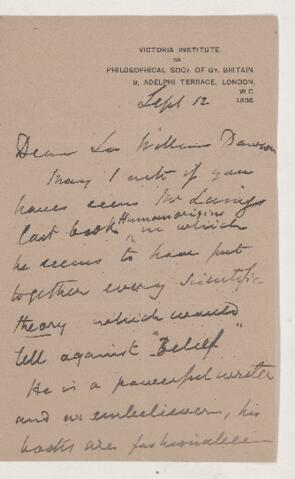 VICTORIA INSTITUTE.
OR
PHILOSOPHICAL SOCY. OF GT. BRITAIN.
8, ADELPHI TERRACE, LONDON,
W.C.
Sept 12 1895
Dear Sir William Dawson
May I ask if you
have seen Mr Laings
last book "Human origins" in which
he seems to have put
together every scientific
theory which would
tell against "Belief"
He is a powerful writer
and an unbeliever, his
books are fashionable